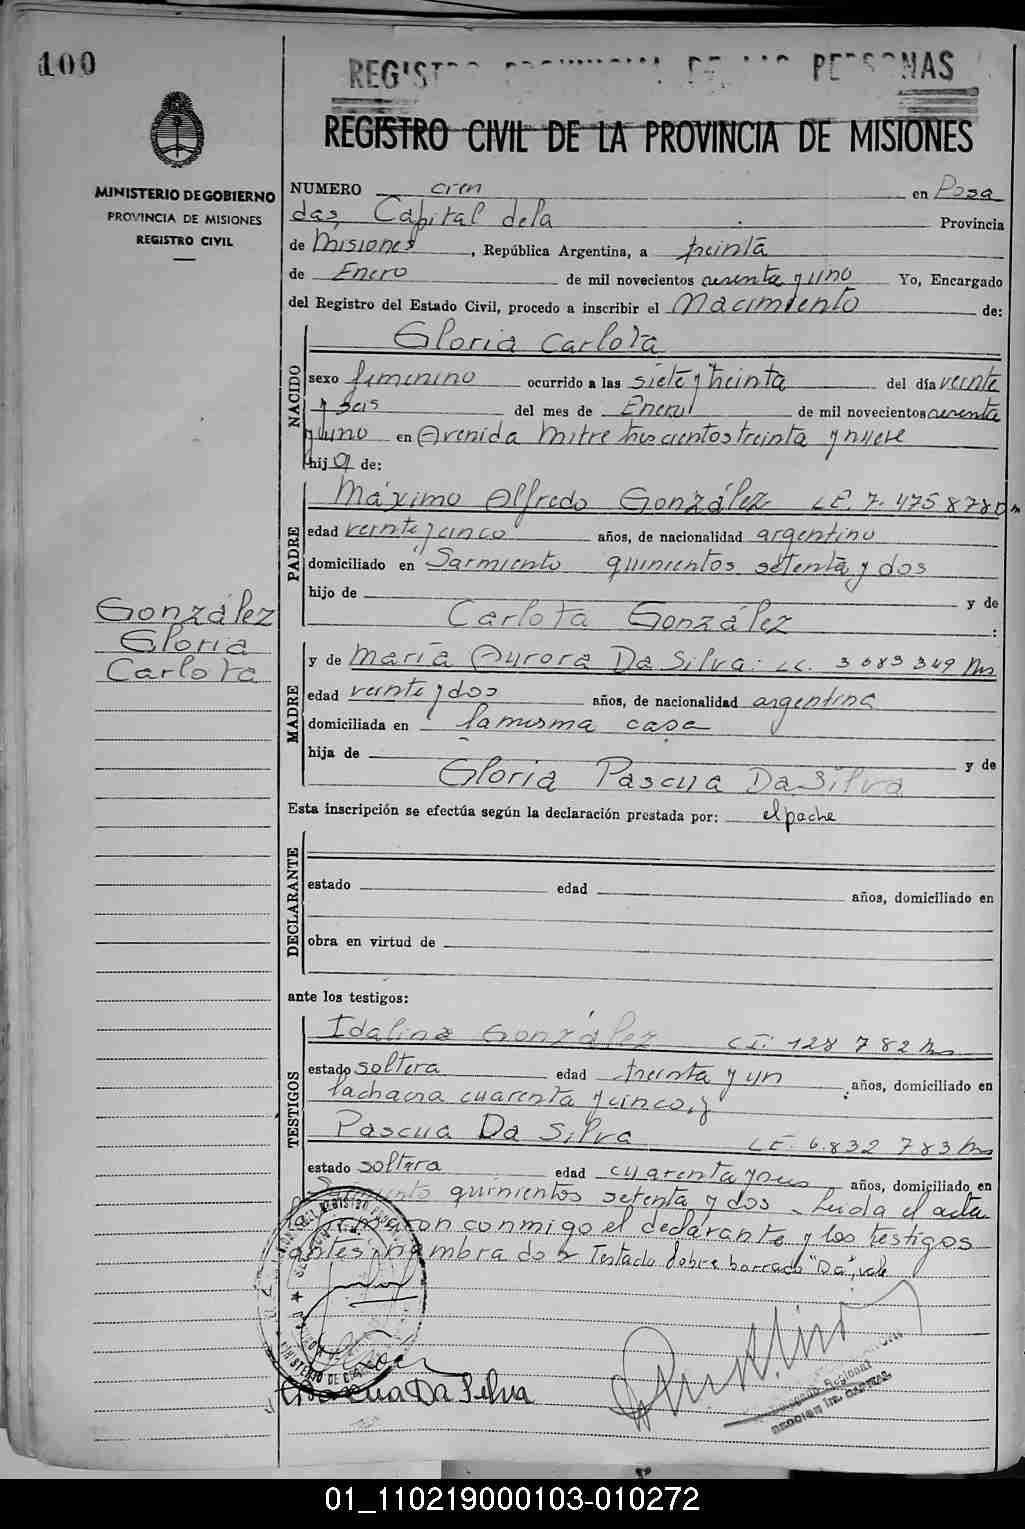 100
REGISTRO PROVINCIAL DE LAS PERSONAS
REGISTRO CIVIL DE LA PROVINCIA DE MISIONES
MINISTERIO DE GOBIERNO
PROVINCIA DE MISIONES
REGISTRO CIVIL
NUMERO cien en Posa
das, Capital de la Provincia
de Misiones, República Argentina, a treinta
de Enero de mil novecientos sesenta y uno Yo, Encargado
del Registro del Estado Civil, procedo a inscribir el Nacimiento de:
NACIDO
Gloria Carlota
sexo femenino ocurrido a las siete y treinta del día veinte
y seis del mes de Enero de mil novecientos sesenta
y uno en Avenida Mitre trescientos treinta y nueve
hija de:
PADRE
Máximo Alfredo González L.E. 7.475878
edad veinte y cinco años, de nacionalidad argentino
domiciliado en Sarmiento quinientos setenta y dos
hijo de y de
Carlota González
González
Gloria
Carlota
MADRE
y de María Aurora Da Silva: L.C. 3683349
edad veinte y dos años, de nacionalidad argentina
domiciliada en la misma casa
hija de y de
Gloria Pascua Da Silva
Esta inscripción se efectúa según la declaración prestada por: el padre
DECLARANTE
estado edad años, domiciliado en
obra en virtud de
ante los testigos:
TESTIGOS
Idalina González C.I. 128 782
estado soltera edad treinta y un años, domiciliado en
la chacra cuarenta y cinco, y
Pascua Da Silva L.E. 6.832 783
estado soltera edad cuarenta y años, domiciliado en
Sarmiento quinientos setenta y dos - Leida el acta
la firmaron conmigo el declarante y los testigos
antes nombrados Testado sobre borrado "Da", vale
Pascua Da Silva
01_110219000103-010272